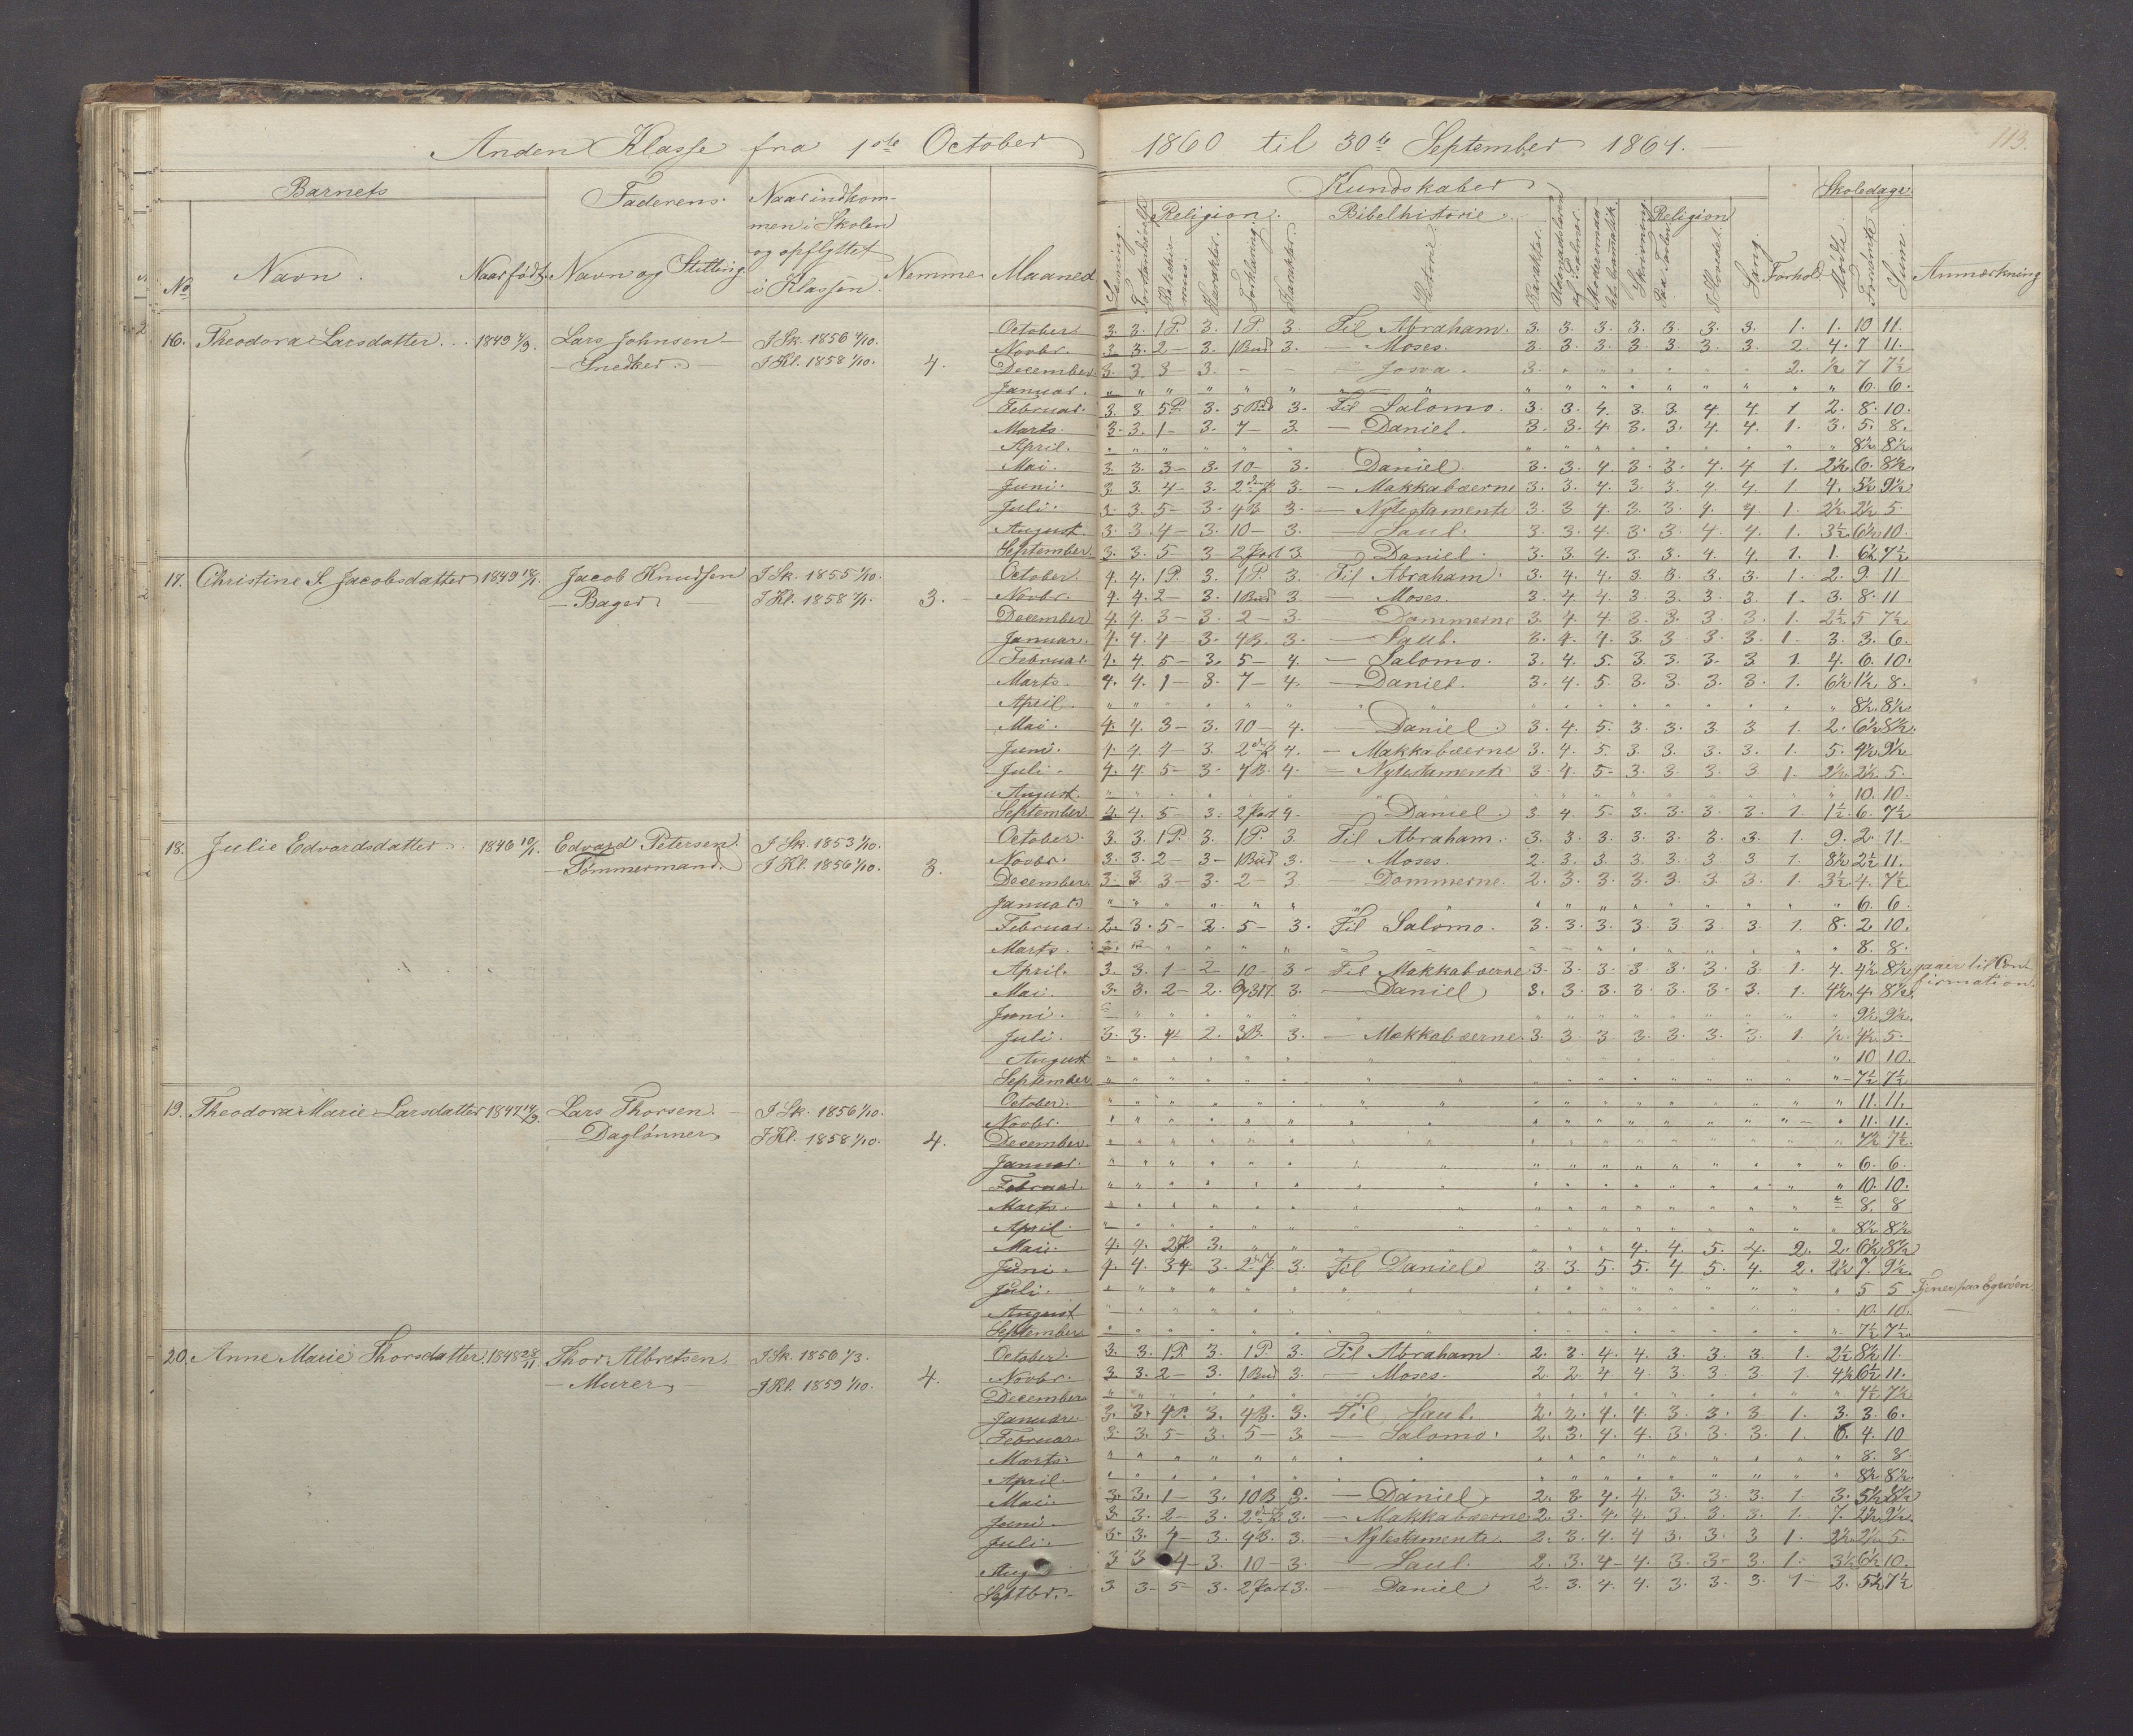 Anden Klasse fra 1ste October 1860 til 30te September 1861.
113.
Barnets
Faderens
Naar indkom-
men i Skolen
og opflyttet
i Klassen.
Kundskaber
Skoledage
Religion.
Bibelhistorie
Religion
No
Navn.
Naar født.
Navn og Stilling
Nemme
Maaned
Læsning.
Karakter.
Forklaring.
Karakter.
Historie
Karakter.
Skrivning.
Sang.
Forhold.
Mødte.
Forsømte.
Sum.
Anmærkning
16. Theodora Larsdatter
Lars Johnsen
Snedker.
I Sk. 1856 1/10.
I Kl. 1858 1/10.
4.
October. 3. 3. 1 P. 3. 1 P. 3. Til Abraham. 3. 3. 3. 3. 3. 3. 3. 1. 1. 10 11.
Novbr. 3. 3. 2 - 3. 1 Bud 3. - Moses. 3. 3. 3. 3. 3. 3. 3. 2. 4. 7 11.
December. 3. 3. 3 - 3. - - Josva. 3. 2. 1/2 7 7 1/2
Januar. 6. 6.
Februar. 3. 3. 5 P. 3. 5 Bud 3. Til Salomo. 3. 3. 4. 3. 3. 4. 4. 1 2. 8. 10.
Marts. 3. 3. 1 - 3. 7 - 3. - Daniel. 3. 3. 4. 3. 3. 4. 4. 1. 3. 5. 8.
April. 8 1/2 8 1/2
Mai. 3. 3. 3 - 3. 10 - 3. Daniel. 3. 3. 4. 3. 3. 4. 4 1. 2 1/2 6. 8 1/2
Juni. 3. 3. 4 - 3. 3. - Makkabæerne 3. 3. 4. 3. 3. 4. 4. 1. 4. 5 1/2 9 1/2
Juli. 3. 3. 5 - 3. 4 B 3. - Nytestamente 3. 3 4. 3. 3. 4. 4 1. 2 1/2 2 1/2 5
August. 3. 3. 4 - 3. 10 - 3. - Saul. 3. 3. 4. 3. 3. 4. 4. 1. 3 1/2 6 1/2 10.
September. 3. 3. 5 - 3 3. Daniel. 3. 3 4. 3. 3. 4. 4. 1. 1. 6 1/2 7 1/2
17. Christine S. Jacobsdatter
Jacob Knudsen
Bager
I Sk. 1855 1/10.
3.
October. 4. 4. 1 P. 3. 1 P. 3. Til Abraham. 3. 4. 4. 3. 3. 3. 3. 1. 2. 9. 11
Novbr. 4. 4. 2 - 3. 1 Bud 3. - Moses. 3. 4. 4. 3. 3. 3. 3. 1. 3. 8. 11
December 4. 4. 3 - 3. 2 - 3. - Dommerne 3. 4. 4. 3. 3. 3. 3. 1. 2 1/2 5 7 1/2
Januar. 4. 4. 4 - 3. 4 B. 3. - Saul. 3. 4. 4. 3. 3. 3. 3. 1. 3. 3. 6.
Februar. 4. 4. 5 - 3. 5 - 4. - Salomo. 3. 4. 5. 3. 3. 3. 3 1. 4. 6. 10.
Marts. 4. 4. 1 - 3. 7 - 4. - Daniel. 3. 4. 5. 3. 3. 3. 3. 1. 6 1/2 1 1/2 8.
April. 8 1/2 8 1/2
Mai. 4. 4. 3 - 3. 10 - 4. Daniel. 3. 4. 5. 3. 3. 3. 3 1. 2. 6 1/2 8 1/2
Juni. 4. 4. 4 - 3 4. - Makkabæerne 3. 4. 5. 3. 3. 3. 3. 1. 5. 4 1/2 9 1/2
Juli. 4. 4. 5 - 3. 4 B. 4. - Nytestamente 3. 4. 5. 3. 3. 3. 3 1. 2 1/2 2 1/2 5.
August. 10. 10.
September 4. 4. 5 3. 4. Daniel 3 4. 5. 3. 3. 3. 3. 1. 1 1/2 6. 7 1/2
18. Julie Edvardsdatter
Edvard Petersen
Tømmermand.
I Sk. 1853 1/10.
I Kl. 1856 1/10.
3.
October. 3. 3. 1 P. 3. 1 P. 3 Til Abraham. 3. 3. 3. 3. 3. 3. 3. 1. 9. 2. 11.
Novbr. 3. 3. 2 - 3 - 1 Bud 3. - Moses. 2. 3. 3. 3. 3. 3 3 1. 8 1/2 2 1/2 11.
December. 3. 3. 3 - 3. 2 - 3. - Dommerne. 2. 3. 3. 3. 3. 3. 3. 1. 3 1/2 4. 7 1/2
Januar 6. 6.
Februar. 2. 3. 5 - 2. 5 - 3. Til Salomo. 3. 3. 3. 3. 3. 3. 3. 1. 8. 2 10.
Marts. 8. 8.
April. 3. 3. 1 - 2 10 - 3 - Til Makkabæerne 3. 3. 3. 3 3. 3. 3. 1. 4. 4 1/2 8 1/2 gaaer til Con-
firmation.
Mai. 3. 3. 2 - 2. 3. - Daniel 3. 3. 3. 3. 3. 3. 3. 1. 4 1/2 4. 8 1/2
Juni. 9 1/2 9 1/2
Juli. 3. 3. 4 2. 3 B. 3. - Makkabæerne. 3. 3 3 3. 3. 3. 3. 1. 1/2 4 1/2 5.
August 10 10.
September 7 1/2 7 1/2
19. Theodora Marie Larsdatter
Lars Thorsen.
Daglønner
I Sk. 1856 1/10.
I Kl. 1858 1/10.
4.
October. 11. 11.
Novbr. 11. 11.
December. 7 1/2 7 1/2
Januar. 6. 6.
Februar. 10. 10.
Marts. 8. 8
April. 8 1/2 8 1/2
Mai. 4. 4. 3. 4. 4. 5. 4. 2. 2. 6 1/2 8 1/2
Juni. 4. 4. 3 4 3. 3. Til Daniel 3. 3. 5. 5. 4 5. 4. 2. 2 1/2 7. 9 1/2
Juli. 5 5 Tjener paa Egerøen
August 10. 10.
September 7 1/2 7 1/2
20. Anne Marie Thorsdatter.
Thor Albretsen.
Murer
I Sk. 1856 1/3.
I Kl. 1859 1/10.
4.
October. 3. 3. 1 P. 3. 1 P. 3. Til Abraham. 2. 3. 4. 4. 3. 3. 3 1. 2 1/2 8 1/2 11.
Novbr. 3. 3. 2 - 3. 1 Bud 3. - Moses. 2. 2. 4. 4 3. 3. 3. 1. 4 1/2 6 1/2 11.
December 7 1/2 7 1/2
Januar. 3. 3. 4 P. 3. 4 B. 3. Til Saul. 2. 2. 4. 4. 3. 3. 3 1. 3. 3. 6.
Februar. 3. 3. 5 - 3. 5 - 3 - Salomo. 2. 3. 4. 4. 3. 3. 3. 1. 6. 4. 10
Marts. 8. 8.
April. 8 1/2 8 1/2
Mai. 3. 3. 1 - 3. 10 B 3. - Daniel. 2. 3. 4. 4. 3. 3. 3. 1. 3. 5 1/2 8 1/2
Juni. 3. 3. 2 - 3. 3. - Makkabæerne 2. 3. 4. 4. 3. 3. 3. 1. 7. 2 1/2 9 1/2
Juli. 3. 3. 4 - 3. 4 B. 3. - Nytestamente. 2. 3. 4. 4 3. 3 3 1. 2 1/2 2 1/2 5.
Aug 3 3 4 - 3. 10 - 3. - Saul 2. 3. 4 - 4. 3. 3 - 3. 1. 3 1/2 6 1/2 10.
Septbr. 3. 3 - 5 - 3. 3. - Daniel 2. 3. 4. 4. 3. 3. 3. 1 - 2. 5 1/2 7 1/2